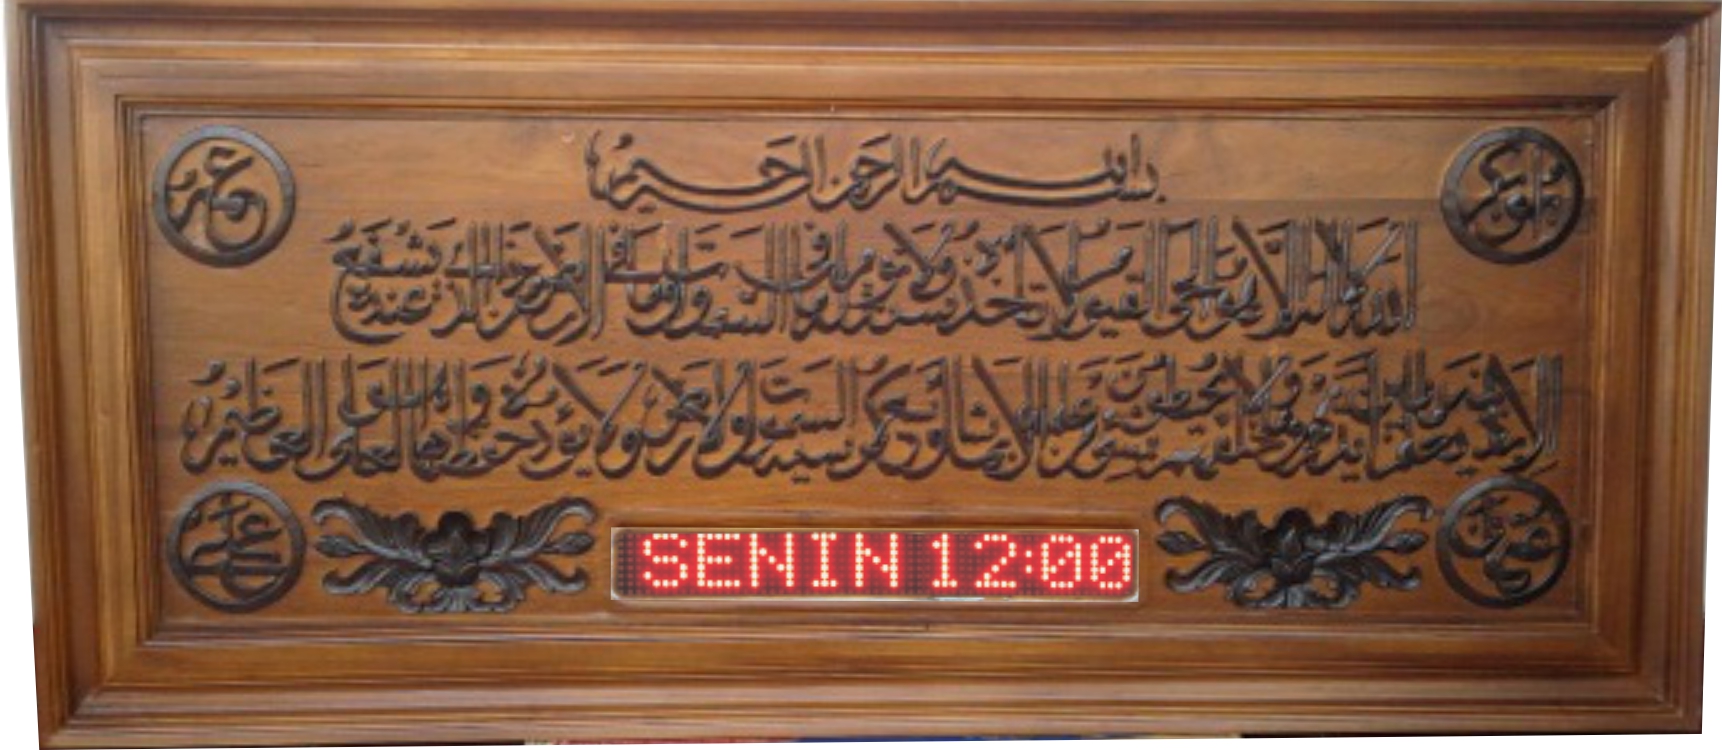 بسم الله الرحمن الرحيم
ابوبكر
عمر
الله لا إله إلا هو الحي القيوم لا تأخذه سنة ولا نوم له ما في السموات وما في الأرض من ذا الذي يشفع عنده
إلا بإذنه يعلم ما بين أيديهم وما خلفهم ولا يحيطون بشيء من علمه إلا بما شاء وسع كرسيه السموات والأرض ولا يؤده حفظهما وهو العلي العظيم
عثمان
علي
SENIN 12:00